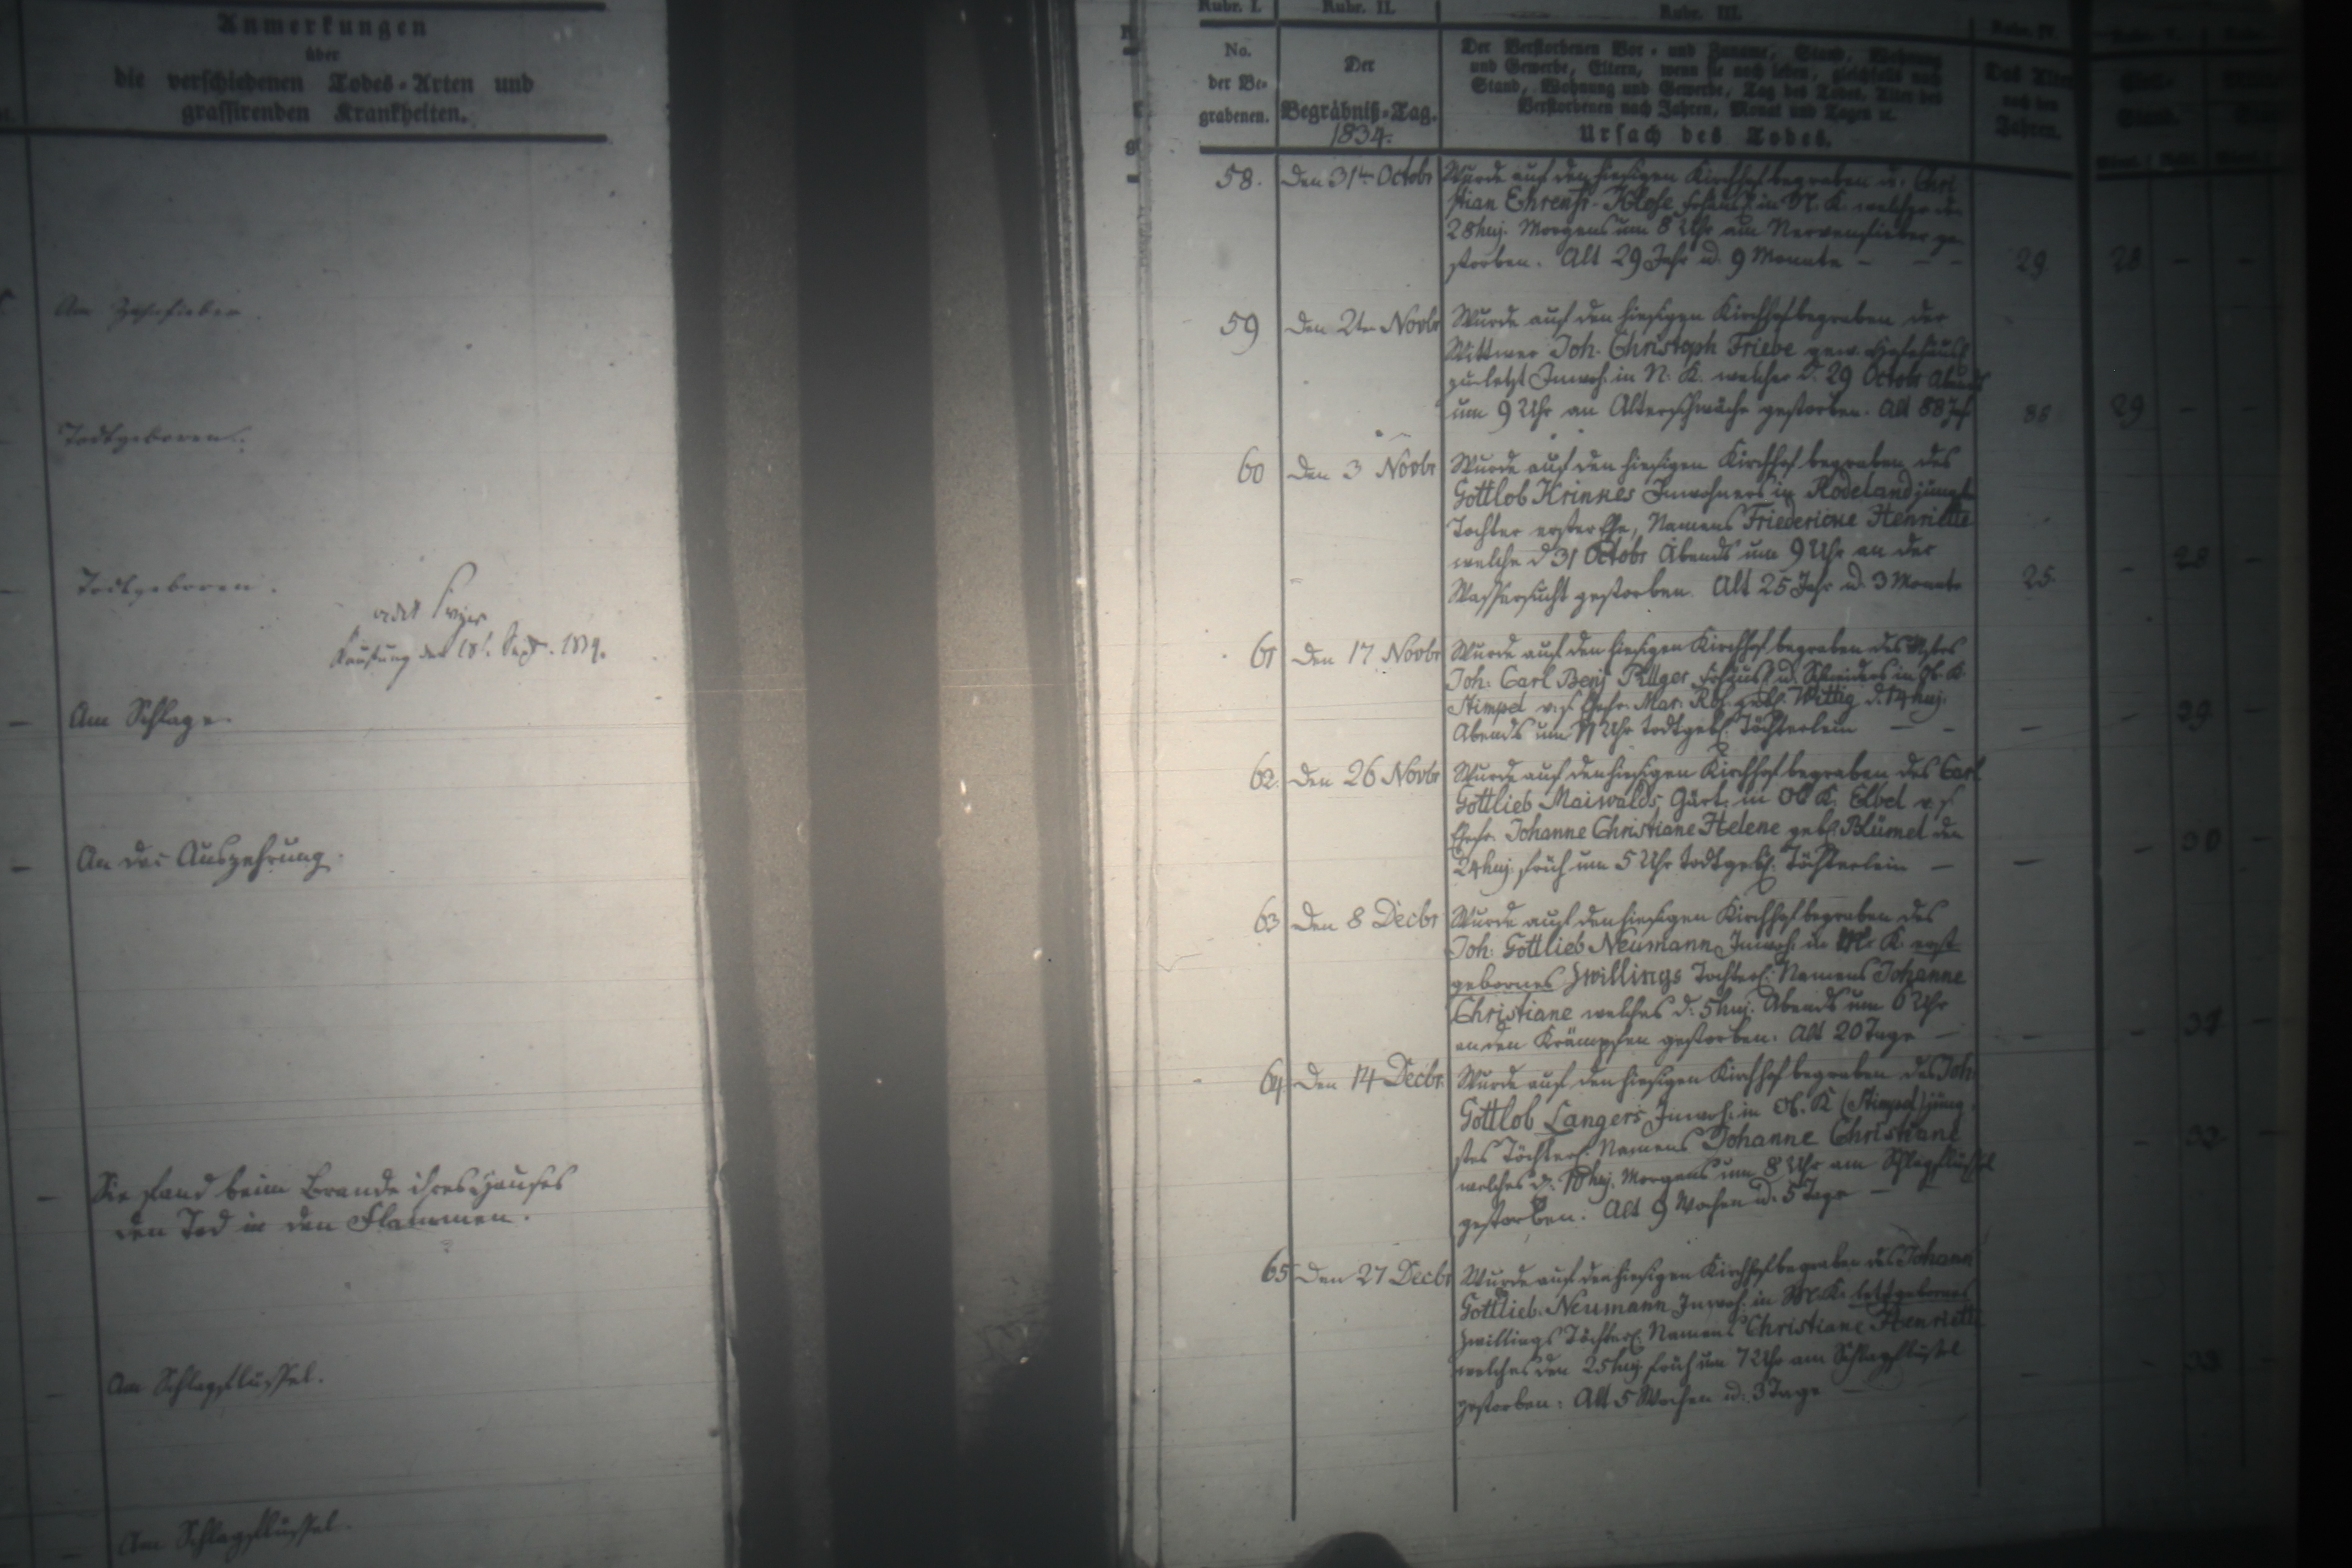 Anmerkungen
über
die verschiedenen Todes-Arten und
grassirenden Krankheiten.
Am Zahnfieber.
Todtgeboren.
Todtgeboren.
Kauffung den 18t. Sept. 1839.
Am Schlage.
An der Auszehrung.
Sie fand beim Brande ihres Hauses
den Tod in den Flammen.
Am Schlagflüssel.
Am Schlagflüssel.
Rubr. I. Rubr. II. Rubr. III. Rubr. IV.
No.
der Be-
grabenen.
Der
Begräbniß-Tag.
1834.
Der Verstorbenen Vor- und Zuname, Stand, Wohnung
und Gewerbe, Eltern, wenn sie noch leben, gleichfalls nach
Stand, Wohnung und Gewerbe, Tag des Todes, Alter des
Verstorbenen nach Jahren, Monat und Tagen ec.
Ursach des Todes.
Das Alter
nach den
Jahren.
58. Den 31ten Octobr Wurde auf den hiesigen Kirchhof begraben d. Chri
stian Ehrenfr. Klose in N. K. welcher d.
28 huj. Morgens um 8 Uhr am Nervenfieber ge-
storben. Alt 29 Jahr u. 9 Monate - - - 29 28 - -
59 Den 2ten Novbr Wurde auf den hiesigen Kirchhof begraben der
Wittwer Joh. Christoph Friebe gew.
zuletzt Inwoh. in N. K. welcher d. 29 Octobr Abends
um 9 Uhr an Altersschwäche gestorben. Alt 88 Jahr 29 - -
60 Den 3 Novbr Wurde auf den hiesigen Kirchhof begraben des
Gottlob Krinkes Inwohners in Rodeland jüngste
Tochter erster Ehe, Namens Friedericke Henriette
welche d 31 Octobr Abends um 9 Uhr an der
Wassersucht gestorben. Alt 25 Jahr u. 3 Monate 25. - 28 -
61 Den 17 Novbr Wurde auf den hiesigen Kirchhof begraben des
Joh. Carl Benj. Rüger u. Schneiders in Ob. K.
Stimpel v. s. Ehefr. Mar. Ros. geb. Wittig d. 14 huj.
Abends um 11 Uhr todtgeb. Töchterlein - - - - 29. -
62. Den 26 Novbr Wurde auf den hiesigen Kirchhof begraben des Carl
Gottlieb Maiwalds, Gärt. in Ob K. Elbel v. s.
Ehefr. Johanne Christiane Helene geb. Blümel den
24 huj. früh um 5 Uhr todtgeb. Töchterlein - - - 30 -
63 Den 8 Decbr Wurde auf den hiesigen Kirchhof begraben des
Joh. Gottlieb Neumann Inwoh. in K. erst-
gebornes Zwillings Töchterl. Namens Johanne
Christiane welches d. 5 huj. Abends um 6 Uhr
an den Krämpfen gestorben. Alt 20 Tage - - - 31 -
64 Den 14 Decbr. Wurde auf den hiesigen Kirchhof begraben des Joh.
Gottlob Langers, Inwoh. in Ob. K (Stimpel) jüng-
stes Töchterl. Namens Johanne Christiane
welches d. 10 huj. Morgens um 8 Uhr am Schlagflüssel
gestorben. Alt 9 Wochen u. 5 Tage - - - 32. -
65 Den 27 Decbr Wurde auf den hiesigen Kirchhof begraben des Johann
Gottlieb Neumann Inwoh. in K. letztgebornes
Zwillings Töchterl. Namens Christiane Henriette
welches den 25 huj. früh um 7 Uhr am Schlagflüssel
gestorben: Alt 5 Wochen u. 3 Tage - - - 33 -